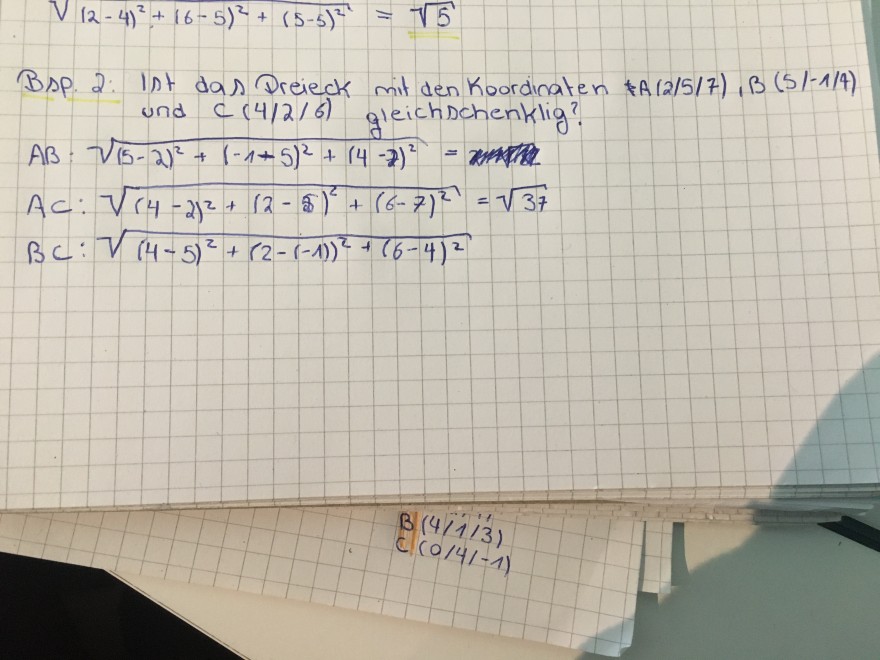 √(2-4)² + (6-5)² + (5-5)² = √5
Bsp. 2: Ist das Dreieck mit den Koordinaten A(2/5/7), B(5/-1/4)
und C(4/2/6) gleichschenklig?
AB: √(5-2)² + (-1-5)² + (4-7)² =
AC: √(4-2)² + (2-5)² + (6-7)² = √37
BC: √(4-5)² + (2-(-1))² + (6-4)²
B(4/1/3)
C(0/4/-1)